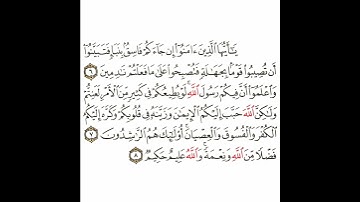 يَٰٓأَيُّهَا ٱلَّذِينَ ءَامَنُوٓا۟ إِن جَآءَكُمْ فَاسِقٌۢ بِنَبَإٍ فَتَبَيَّنُوٓا۟
أَن تُصِيبُوا۟ قَوْمًۢا بِجَهَٰلَةٍ فَتُصْبِحُوا۟ عَلَىٰ مَا فَعَلْتُمْ نَٰدِمِينَ ٦
وَٱعْلَمُوٓا۟ أَنَّ فِيكُمْ رَسُولَ ٱللَّهِ ۚ لَوْ يُطِيعُكُمْ فِى كَثِيرٍ مِّنَ ٱلْأَمْرِ لَعَنِتُّمْ
وَلَٰكِنَّ ٱللَّهَ حَبَّبَ إِلَيْكُمُ ٱلْإِيمَٰنَ وَزَيَّنَهُۥ فِى قُلُوبِكُمْ وَكَرَّهَ إِلَيْكُمُ
ٱلْكُفْرَ وَٱلْفُسُوقَ وَٱلْعِصْيَانَ ۚ أُو۟لَٰٓئِكَ هُمُ ٱلرَّٰشِدُونَ ٧
فَضْلًا مِّنَ ٱللَّهِ وَنِعْمَةً ۚ وَٱللَّهُ عَلِيمٌ حَكِيمٌ ٨